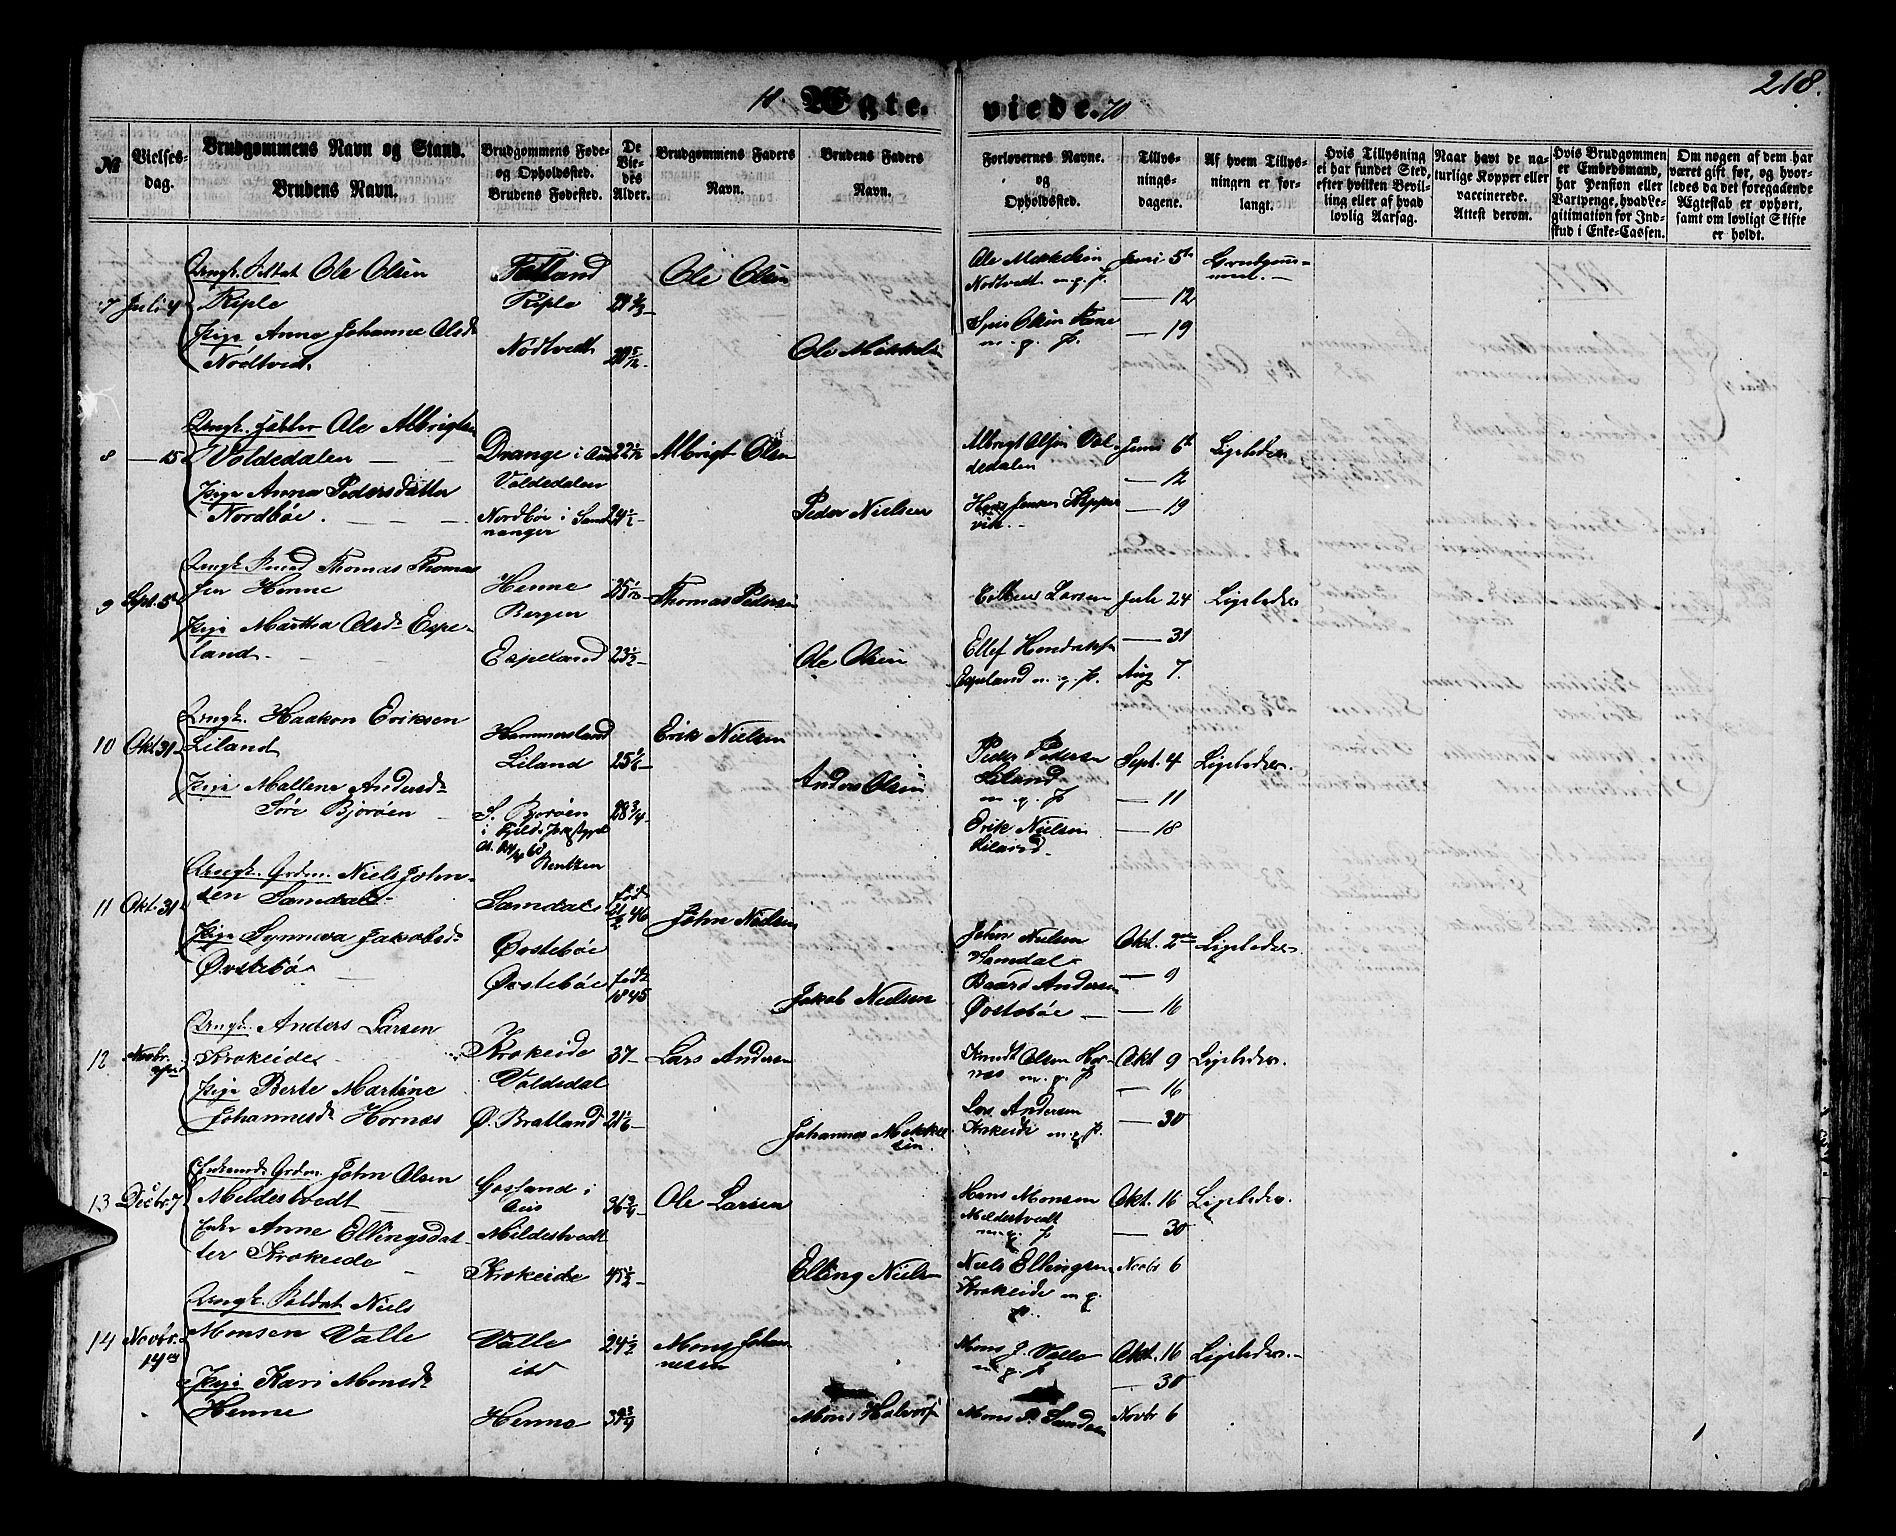 218.
18 Ægte- viede. 70
№
Vielses-
dag.
Brudgommens Navn og Stand.
Brudens Navn.
Brudgommens Føde-
og Opholdssted.
Brudens Fødested.
De
Vie-
des
Alder.
Brudgommens Faders
Navn.
Brudens Faders
Navn.
Forlovernes Navne.
og
Opholdssted.
Tillys-
nings-
dagene.
Af hvem Tillys-
ningen er for-
langt.
Hvis Tillysning
ei har fundet Sted,
efter hvilken Bevil-
ling eller af hvad
lovlig Aarsag.
Naar havt de na-
turlige Kopper eller
vaccinerede.
Attest derom.
Hvis Brudgommen
er Embedsmand,
har Pension eller
Vartpenge, hvad Le-
gitimation for Ind-
skud i Enke-Cassen.
Om nogen af dem har
været gift før, og hvor-
ledes da det foregaaende
Ægteskab er ophørt,
samt om lovligt Skifte
er holdt.
7 Juli 4
Ungk. Soldat Ole Olsen
Riple
Pige Anna Johanne Olsd
Nödtvedt
Riple
Nödtvedt
Ole Olsen
Ole Mikkelsen
Ole Mikkelsen
Nödtvedt m.g.p.
m. g. p.
Juni 5th
— 12
— 19
8 — 15
Ole Albrigtsen
Voldedalen
Pige Anna Pedersdatter
Nordböe
Drange i
Voldedalen
Nordböe i Sam
nanger
Albrigt Olsen
Peder Nielsen
Albrigt Olsen Vol-
dedalen
Juni 6th
— 12
— 19
Ligeledes
9 Sept. 5
Ungk. Thomas Thomas
sen Henne
Pige Martha Olsd Espe-
land
Henne
Bergen
Espeland
Thomas Pedersen
Ole Olsen
Larsen
Ellef Hendriks
Espeland m. g. p.
Juli 24
— 31
Aug 7.
Ligeledes
10 Okt 31
Ungk. Haakon Eriksen
Liland
Pige Mallene Andersd
Söre Bjoröen
Hammersland
Liland
S. Bjoröen
Erik Nielsen
Anders Olsen
Peder Pedersen
Liland
m. g. p
Erik Nielsen
Liland
Sept. 4
— 11
— 18
Ligeledes
11 Okt. 31
Ungk. Grdm. Niels John-
sen Samdal
Pige Synneva Jakobsd
Övstebö
Samdal
Övsteböe
Övsteböe
föd
1845
John Nielsen
Jakob Nielsen
John Nielsen
Samdal
Baard Andersen
Övsteböe
Okt. 2
— 9
— 16
Ligeledes
12 Novbr.
Ungk. Anders Larsen
Krokeide
Pige Berte Martine
Johannesd Hornæs
Krokeide
Voldedal
Ö. Bratland
37
Lars Andersen
Johannes Mikkel
sen
Knudt Olsen Hor-
næs m. g. p
Lars Andersen
Krokeide m.g.p.
Okt 9
— 16
— 30
Ligeledes
13 Decbr 7
Enkemd. Grdm. John Olsen
Mildestvedt
Enke Anne Ellingsdat-
ter Krokeide
i
Mildestvedt
Krokeide
36 3/4
45 1/2
Ole Larsen
Elling Nielsen
Hans Monsen
Mildestvedt
m.g. p
Niels Ellingsen
Krokeide m g.
p.
Okt. 16
— 30
Novbr 6
Ligeledes
14 Novbr.
14
Ungk. Soldat Niels
Monsen Valle
Pige Kari Monsd
Henne
Valle
Henne
24 1/2
Mons Johan
nesen
Mons Halvors
Mons J. Valle
m. g. p
Mons
Okt. 16
— 30
Novbr 6
Ligeledes